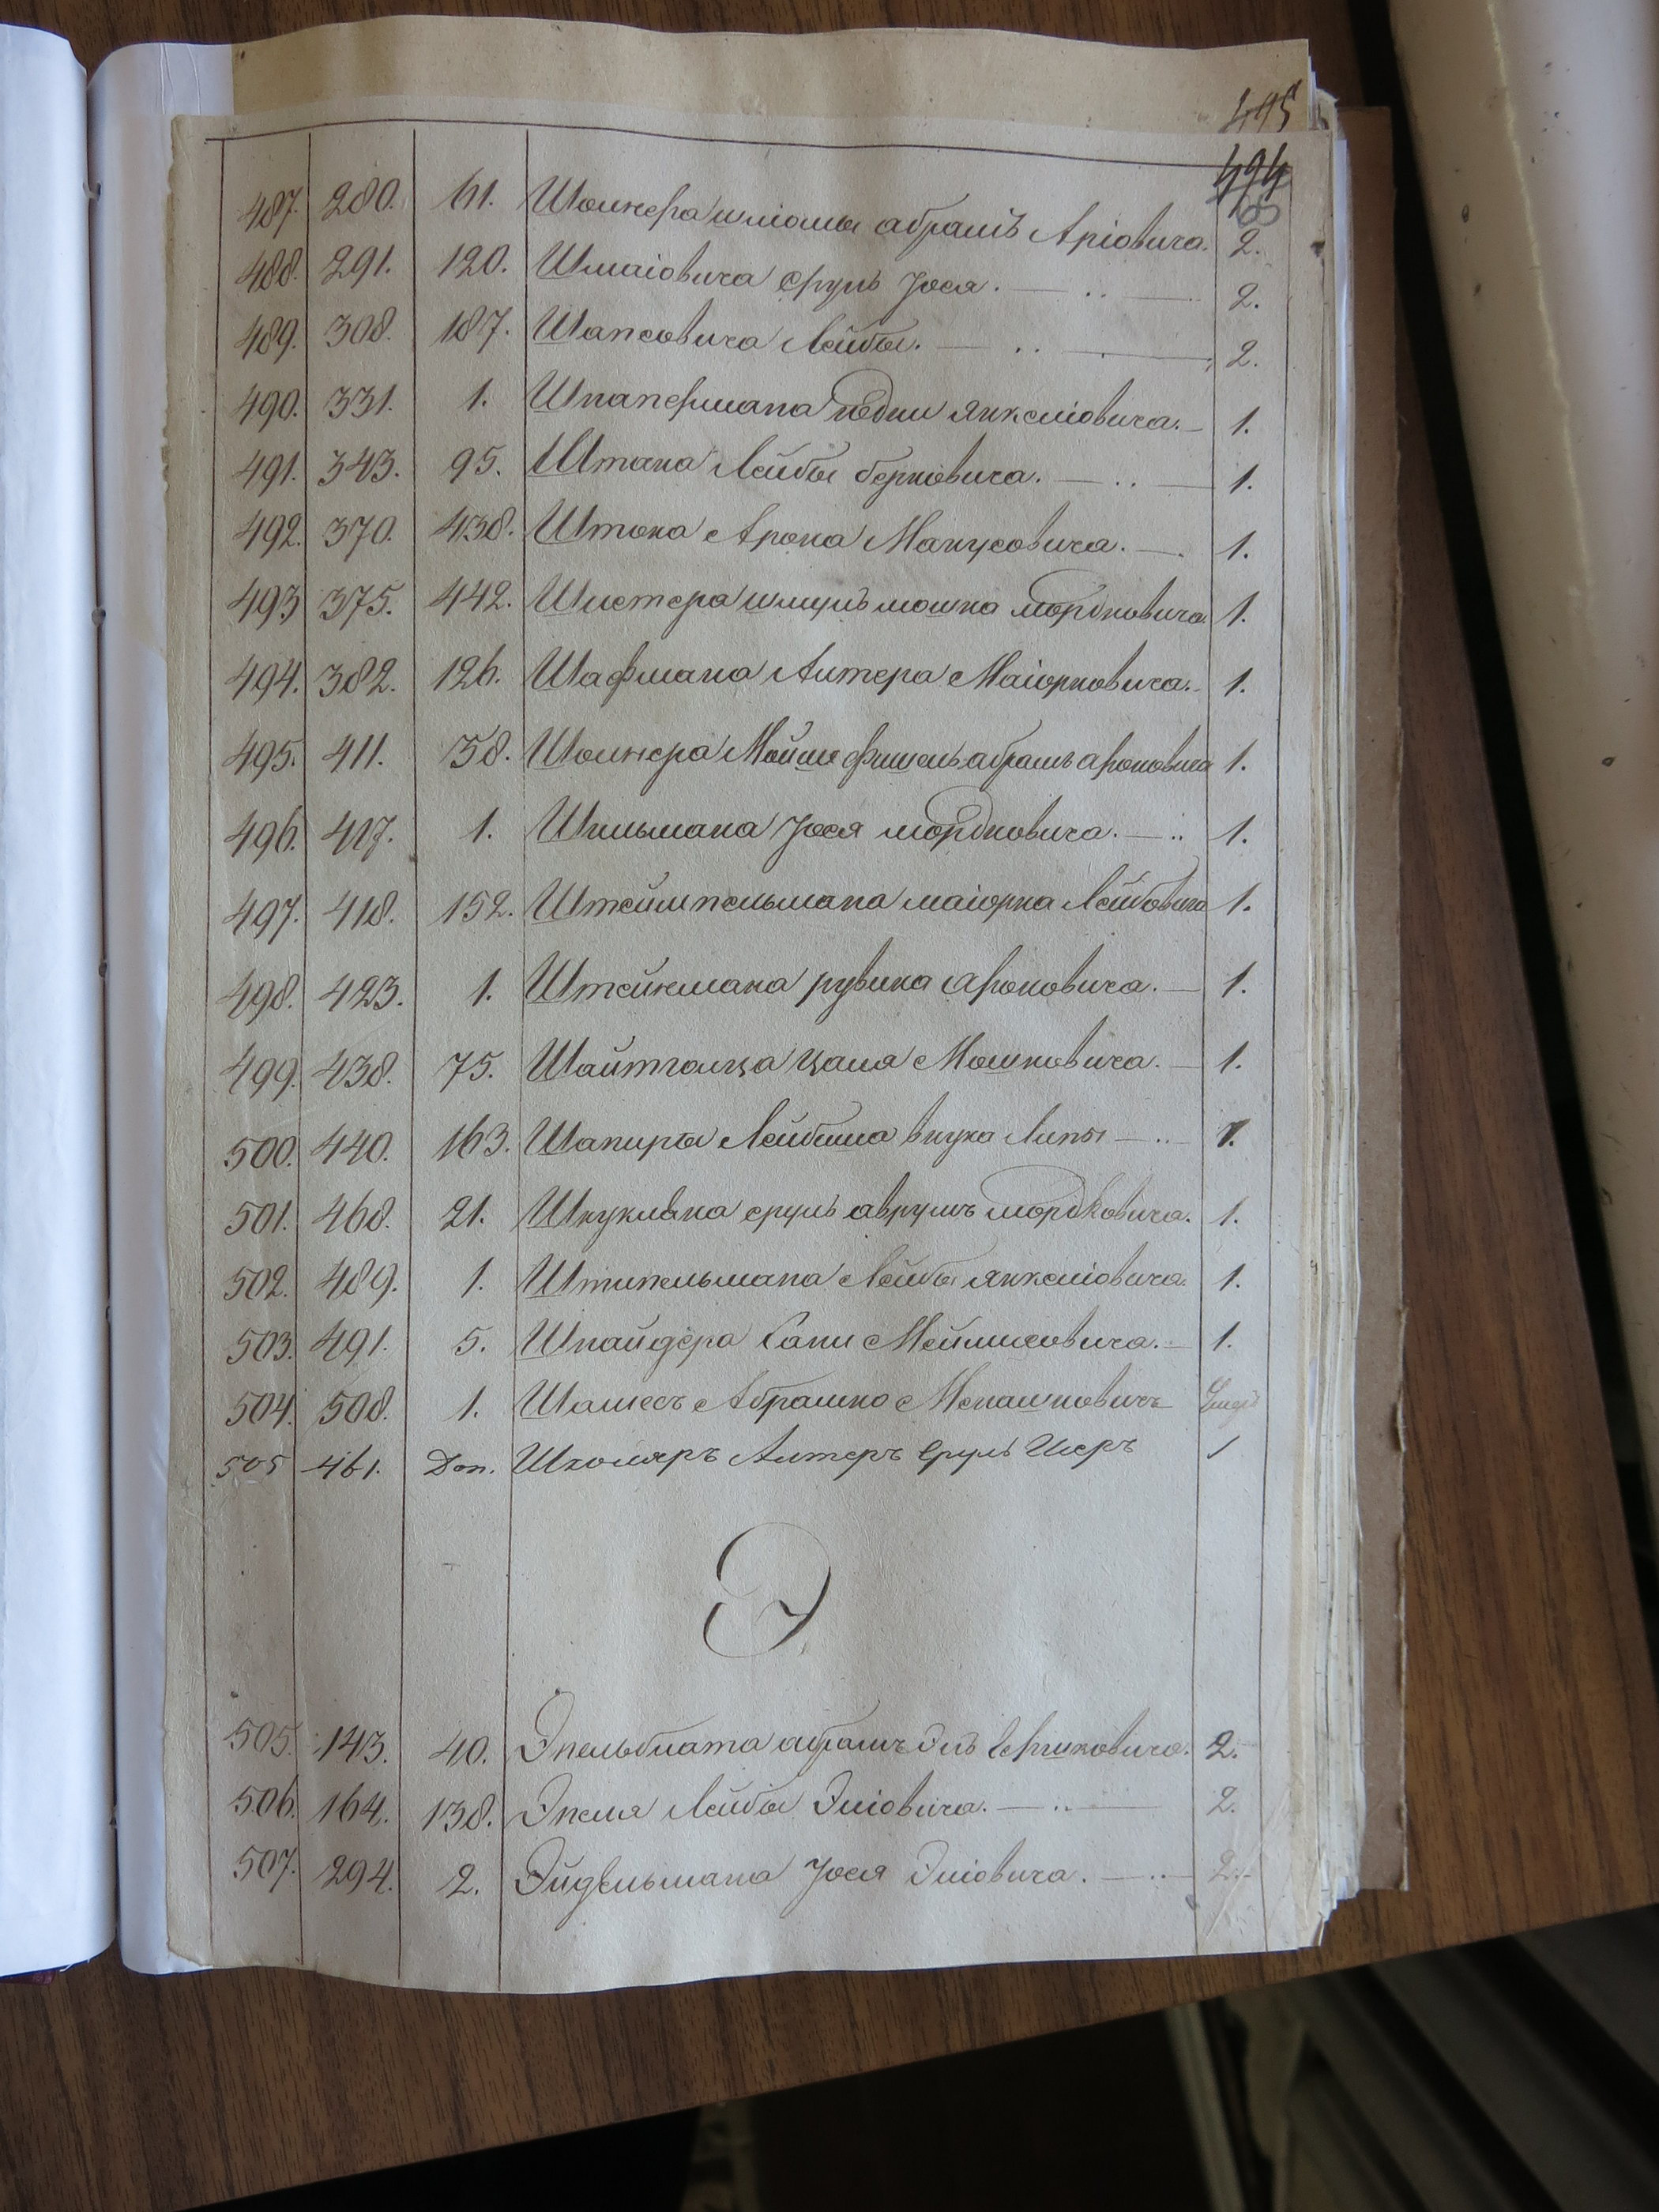 495
494
487. 280. 61. Шолнера шліомы абрамъ Аріовича. 2.
488. 291. 120. Шмаіовича сруль Іося. — .. — 2.
489. 308. 187. Шапсовича Лейбы. — .. — 2.
490. 331. 1. Шпапермана Янкеліовича. — 1.
491. 343. 95. Штака Лейбы берковича. — .. — 1.
492. 370. 438. Штока Арона Манусовича. — . 1.
493 375. 442. Шистера шмуль мошка мордковича 1.
494. 382. 126. Шафмана Алтера Маіорковича. 1.
495. 411. 38. Шолнера Мойше фишель абрамъ ароновича 1.
496. 417. 1. Шпильмана Іося мордковича. — .. 1.
497. 418. 152. Штеймпельмана маіорка Лейбовича 1.
498. 423. 1. Штейнмана рувина Ароновича. — 1.
499. 438. 75. Мошковича. — 1.
500. 440. 163. Шапиры Лейбиша внука Липы — .. — 1.
501. 468. 21. сруль аврумъ мордковича. 1.
502. 489. 1. Штипельмана Лейбы янкеліовича. 1.
503. 491. 5. Шнайдера 1.
504. 508. 1. Шамесъ Абрашко Менашковичъ
505 461. Доп. Школяръ Алтеръ Сруль 1
Э
505. 143. 40. Эпельблата абрамъ Эль Гершковича. 2.
506. 164. 138. Эпеля Лейбы Эліовича. — .. — 2.
507. 294. 2. Эйдельмана Іося Эліовича. — .. — 2.